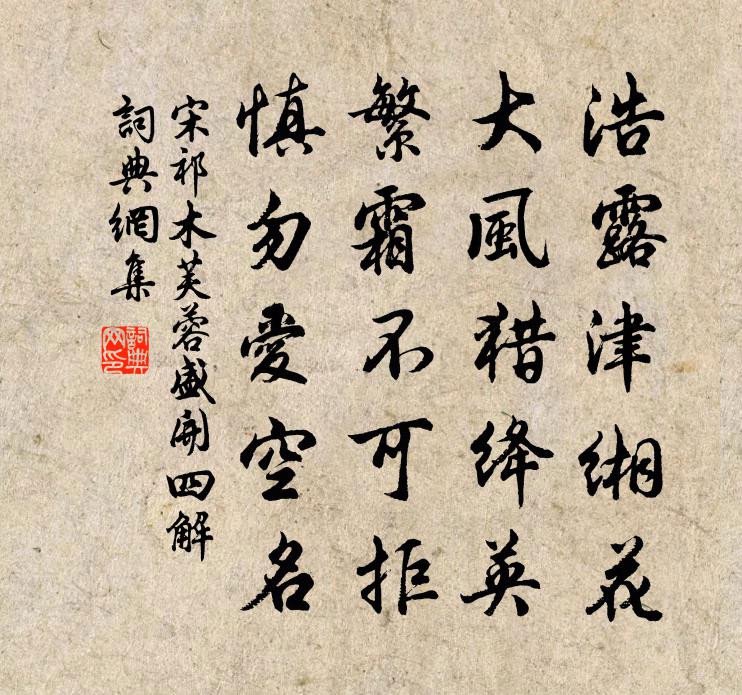 浩露津緗花
大風猎绛英
繁霜不可拒
慎勿愛空名
宋祁木芙蓉盛開四解
詞典網集
詞典網印